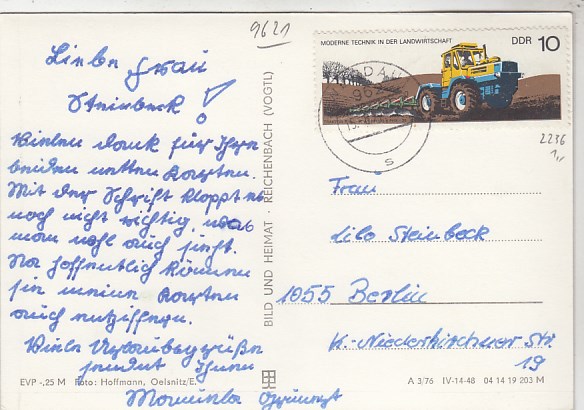 9621
MODERNE TECHNIK IN DER LANDWIRTSCHAFT DDR 10
Liebe Frau
Steinbeck!
Vielen Dank für Ihre
beiden netten Karten.
Mit der Schrift klappt es
noch nicht richtig, was
man wohl auch sieht.
Na hoffentlich können
sie meine Karten
auch entziffern.
Viele Urlaubsgrüße
sendet Ihnen
BILD UND HEIMAT · REICHENBACH (VOGTL)
2236
1,,
Frau
Lilo Steinbeck
1055 Berlin
K.-Niederkirchner Str.
19
EVP -,25 M Foto: Hoffmann, Oelsnitz/E.
A 3/76 IV-14-48 04 14 19 203 M